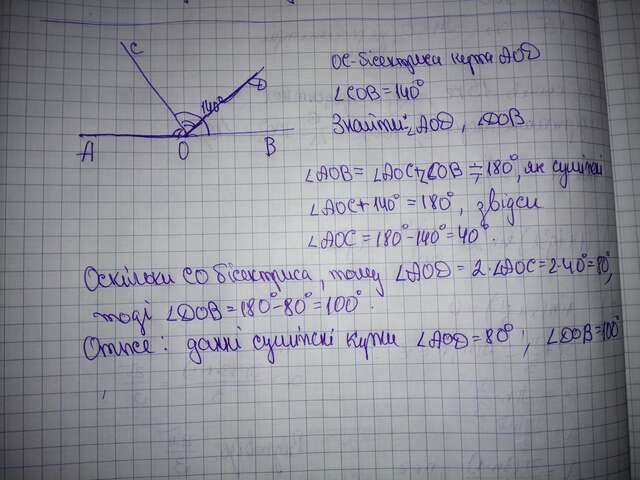 C
D
140°
A
O
B
OC-бісектриса кута AOD
∠COB=140°
Знайти: ∠AOD, ∠DOB
∠AOB = ∠AOC+∠COB = 180°, як суміжні
∠AOC+140° = 180°, звідси
∠AOC = 180°-140°=40°.
Оскільки CO бісектриса, тому ∠AOD = 2·∠AOC=2·40°=80°,
тоді ∠DOB=180°-80°=100°.
Отже: данні суміжні кути ∠AOD=80°; ∠DOB=100°